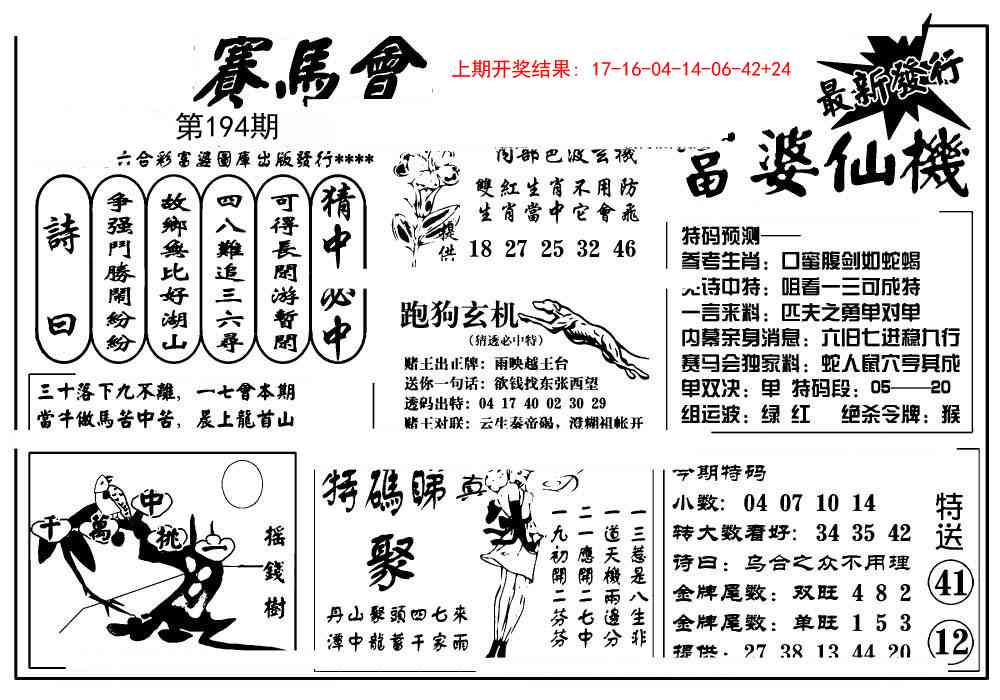 賽馬會
上期开奖结果：17-16-04-14-06-42+24
最新發行
第194期
六合彩富婆圖庫出版發行****
富婆仙機
猜中必中
可得長閉游暫閉
四八難追三六尋
故鄉無比好湖山
争强鬥勝鬧紛紛
詩曰
三十落下九不離，一七會本期
當牛做馬苦中苦，晨上龍首山
内部色波玄機
雙紅生肖不用防
生肖當中它會飛
提供
18 27 25 32 46
跑狗玄机
(猜透必中特)
赌王出正牌：雨映越王台
送你一句话：欲钱找东张西望
透码出特：04 17 40 02 30 29
赌王对联：云生秦帝碣，澄糊祖帐开
特码预测——
参考生肖：口蜜腹剑如蛇蝎
诗中特：咀看一三可成特
一言来料：匹夫之勇单对单
内幕亲身消息：六旧七进稳九行
赛马会独家料：蛇人鼠穴亨其成
单双决：单 特码段：05——20
组运波：绿 红 绝杀令牌：猴
千萬中桃一
搖錢樹
特碼睇真
聚
丹山聚頭四七來
潭中龍蓄千家雨
一三惹是八生非
一道天機兩邊分
二一應開二七中
一九初開二芬芬
今期特码
小数：04 07 10 14
转大数看好：34 35 42
诗曰：乌合之众不用理
金牌尾数：双旺 4 8 2
金牌尾数：单旺 1 5 3
提供：27 38 13 44 20
特送
41
12